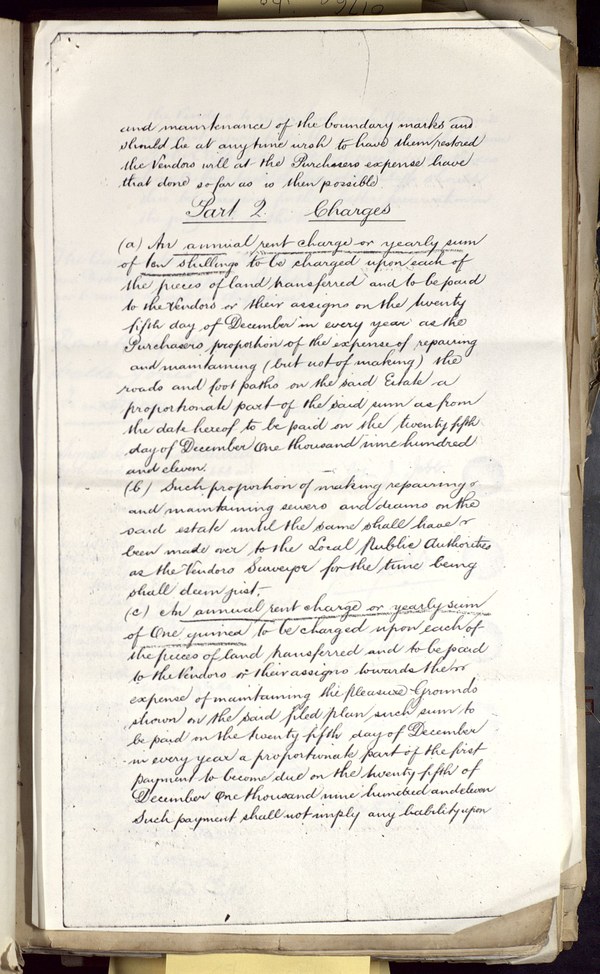 and maintenance of the boundary marks and
should he at any time wish to have them restored
the Vendors will at the Purchasers expense have
that done so far as is then possible
Part 2. Charges
(a) An annual rent charge or yearly sum
of ten shillings to be charged upon each of
the pieces of land transferred and to be paid
to the Vendors or their assigns on the twenty
fifth day of December in every year as the
Purchasers proportion of the expense of repairing
and maintaining (but not of making) the
roads and foot paths on the said Estate a
proportionate part of the said sum as from
the date hereof to be paid on the twenty fifth
day of December One thousand nine hundred
and eleven.
(b) Such proportion of making repairing
and maintaining sewers and drains on the
said estate until the same shall have
been made over to the Local Public Authorities
as the Vendors Surveyor for the time being
shall deem just.
(c) An annual rent charge or yearly sum
of One guinea to be charged upon each of
the pieces of land transferred and to be paid
to the Vendors or their assigns towards the
expense of maintaining the pleasure Grounds
shown on the said filed plan such sum to
be paid on the twenty fifth day of December
in every year a proportionate part of the first
payment to become due on the twenty fifth of
December One thousand nine hundred and eleven
Such payment shall not imply any liability upon